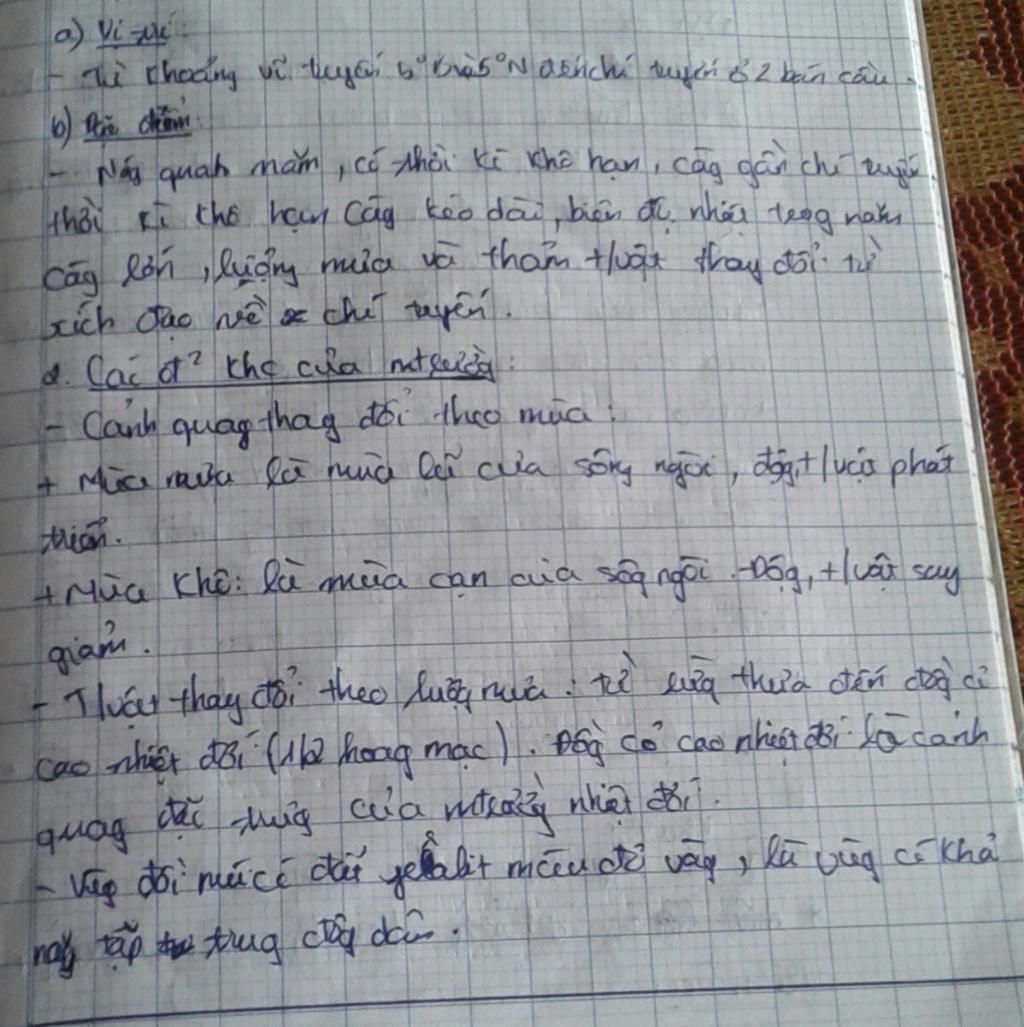 a) Vị trí:
- Từ khoảng vĩ tuyến 5°B và 5°N đến chí tuyến ở 2 bán cầu.
b) Đặc điểm:
- Nóg quah năm, có thời kì khô hạn, càg gần chí tuyến
thời kì khô hạn càg kéo dài, biên độ nhiệt trog năm
càg lớn, lượng mưa và thảm t/vật thay đổi từ
xích đạo về chí tuyến.
2. Các đ² khc của mt
- Cảnh quag thay đổi theo mùa:
+ Mùa mưa là mùa lũ của sông ngòi, độg, t/vật phát
triển.
+ Mùa khô: là mùa cạn của sôg ngòi. Độg, t/vật suy
giảm.
- T/vật thay đổi theo lượg mưa: từ rừg thưa đến đồg cỏ
cao nhiệt đới (1/2 hoag mạc). Đồg cỏ cao nhiệt đới là cảnh
quag đặc trưg của mtrườg nhiệt đới.
- Vùg đồi núi có đất feralit màu đỏ vàg, là vùg có khả
tập trug đôg dân.